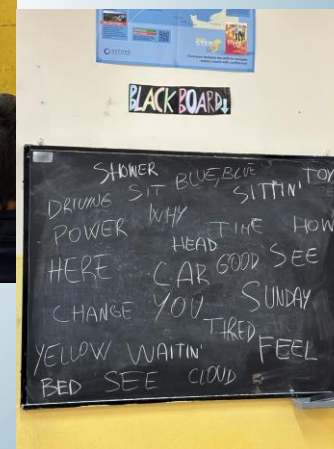 BLACKBOARD
SHOWER BLUE, BLUE TOY
DRIVING SIT SITTIN'
POWER WHY TIME HOW
HEAD
HERE CAR GOOD SEE
CHANGE YOU SUNDAY
TIRED
YELLOW WAITIN' FEEL
BED SEE CLOUD